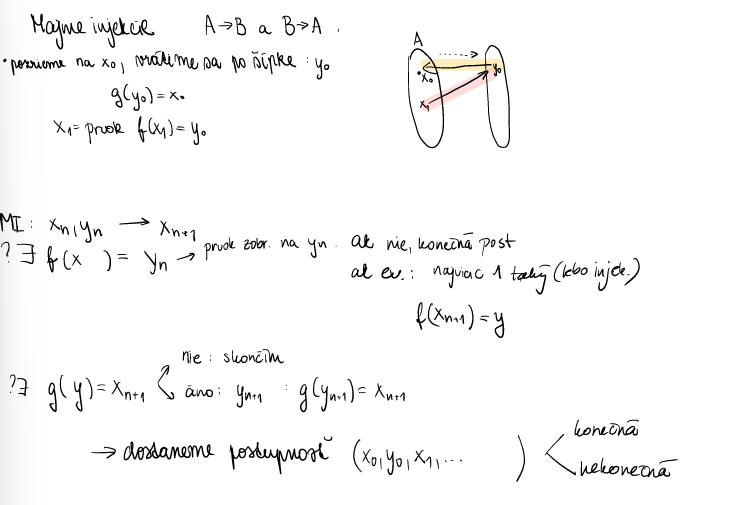 Majme injekcie A→B a B→A.
• pozrieme na x₀, vrátime sa po šípke: y₀
g(y₀)=x₀
x₁= prvok f(x₁)= y₀
A
x₀
y₀
x₁
MI: xₙ, yₙ → xₙ₊₁
?∃ f(x ) = yₙ → prvok zobr. na yₙ. ak nie, konečná post
ak ex.: najviac 1 taký (lebo injek.)
f(xₙ₊₁) = y
nie: skončím
?∃ g(y)=xₙ₊₁ áno: yₙ₊₁ : g(yₙ₊₁)= xₙ₊₁
→ dostaneme postupnosť (x₀, y₀, x₁, ... )
konečná
nekonečná